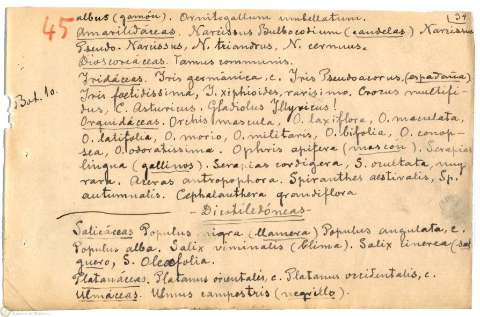 45
34
albus (gamón). Ornitogallum umbellatum.
Amarilidáceas. Narcissus Bulbocodium (candelas) Narcissus
Pseudo-Narcissus, N. triandrus, N. cernuus.
Dioscoreaceas. Tamus communis.
Iridáceas. Iris germánica, c. Iris Pseudoacorus, (espadaña)
Bot. 10.
Iris foetidissima, I. xiphioides, rarísimo. Crocus multifi-
dus, C. Asturicus. Gladiolus Illyricus!
Orquidáceas. Orchis mascula, O. laxiflora, O. maculata,
O. latifolia, O. morio, O. militaris, O. bifolia, O. conop-
sea, O. odoratissima. Ophris apifera (moscon). Serapias
lingua (gallinos). Serapias cordigera, S. ocultata, muy
rara. Aceras antropophora. Spiranthes aestivalis, Sp.
autumnalis. Cephalanthera grandiflora
- Dicotiledóneas -
Salicáceas Populus nigra (llamera) Populus angulata, c.
Populus alba. Salix viminalis (blima). Salix cinerea (sal
guero), S. Oleofolia.
Platanáceas. Platanus orientalis, c. Platanus occidentalis, c.
Ulmáceas. Ulmus campestris (negrillo).